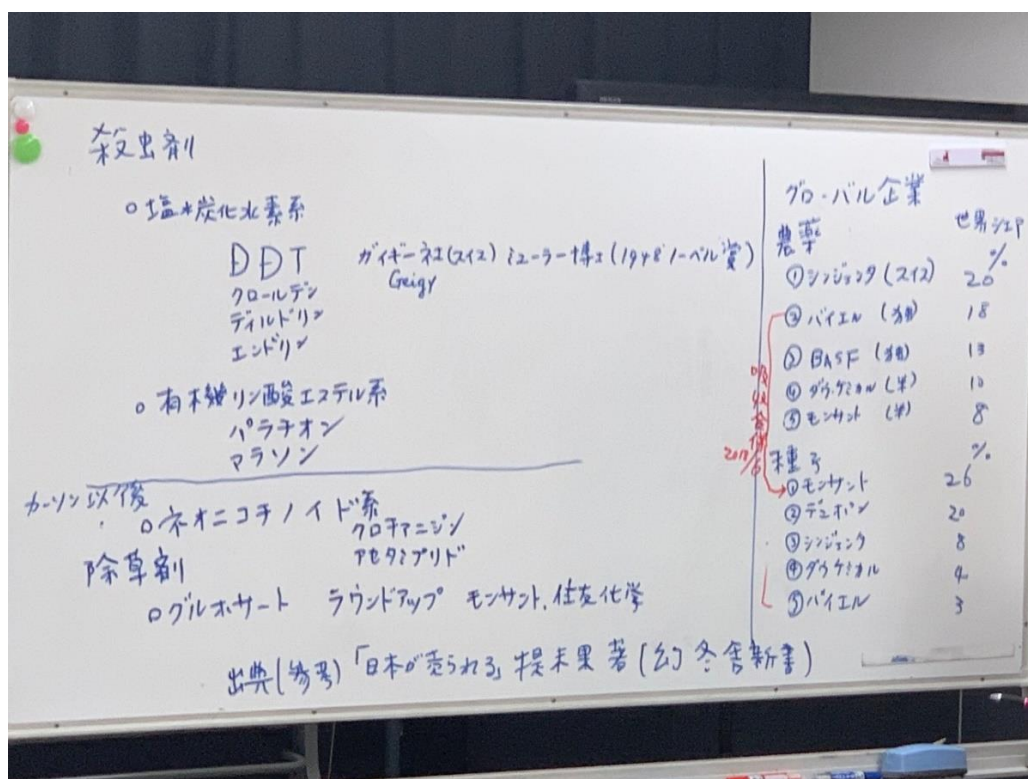 殺虫剤
○塩素炭化水素系
DDT ガイギー社(スイス) ミューラー博士(1948ノーベル賞)
Geigy
クロールデン
ディルドリン
エンドリン
○有機リン酸エステル系
パラチオン
マラソン
カーソン以後
○ネオニコチノイド系
クロチアニジン
アセタミプリド
除草剤
○グルホサート ラウンドアップ モンサント、住友化学
出典(参考)「日本が売られる」堤未果 著(幻冬舎新書)
グローバル企業
農薬 世界シェア
%
①シンジェンタ(スイス) 20
② バイエル (独) 18
③ BASF (独) 13
④ ダウ・ケミカル (米) 10
⑤ モンサント (米) 8
吸収合併
2018/6
種子 %
①モンサント 26
②デュポン 20
③シンジェンタ 8
④ダウケミカル 4
⑤バイエル 3